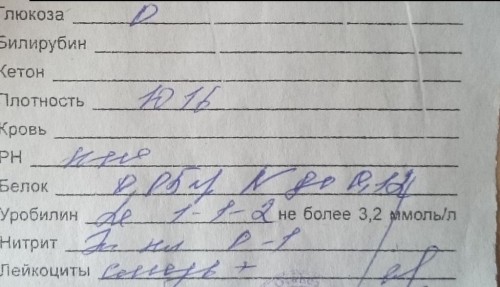 Глюкоза 0
Билирубин
Кетон
Плотность 1016
Кровь
PH
Белок N до 0,12
Уробилин Le 1-1-2 не более 3,2 ммоль/л
Нитрит Эп 0-1
Лейкоциты слизь +